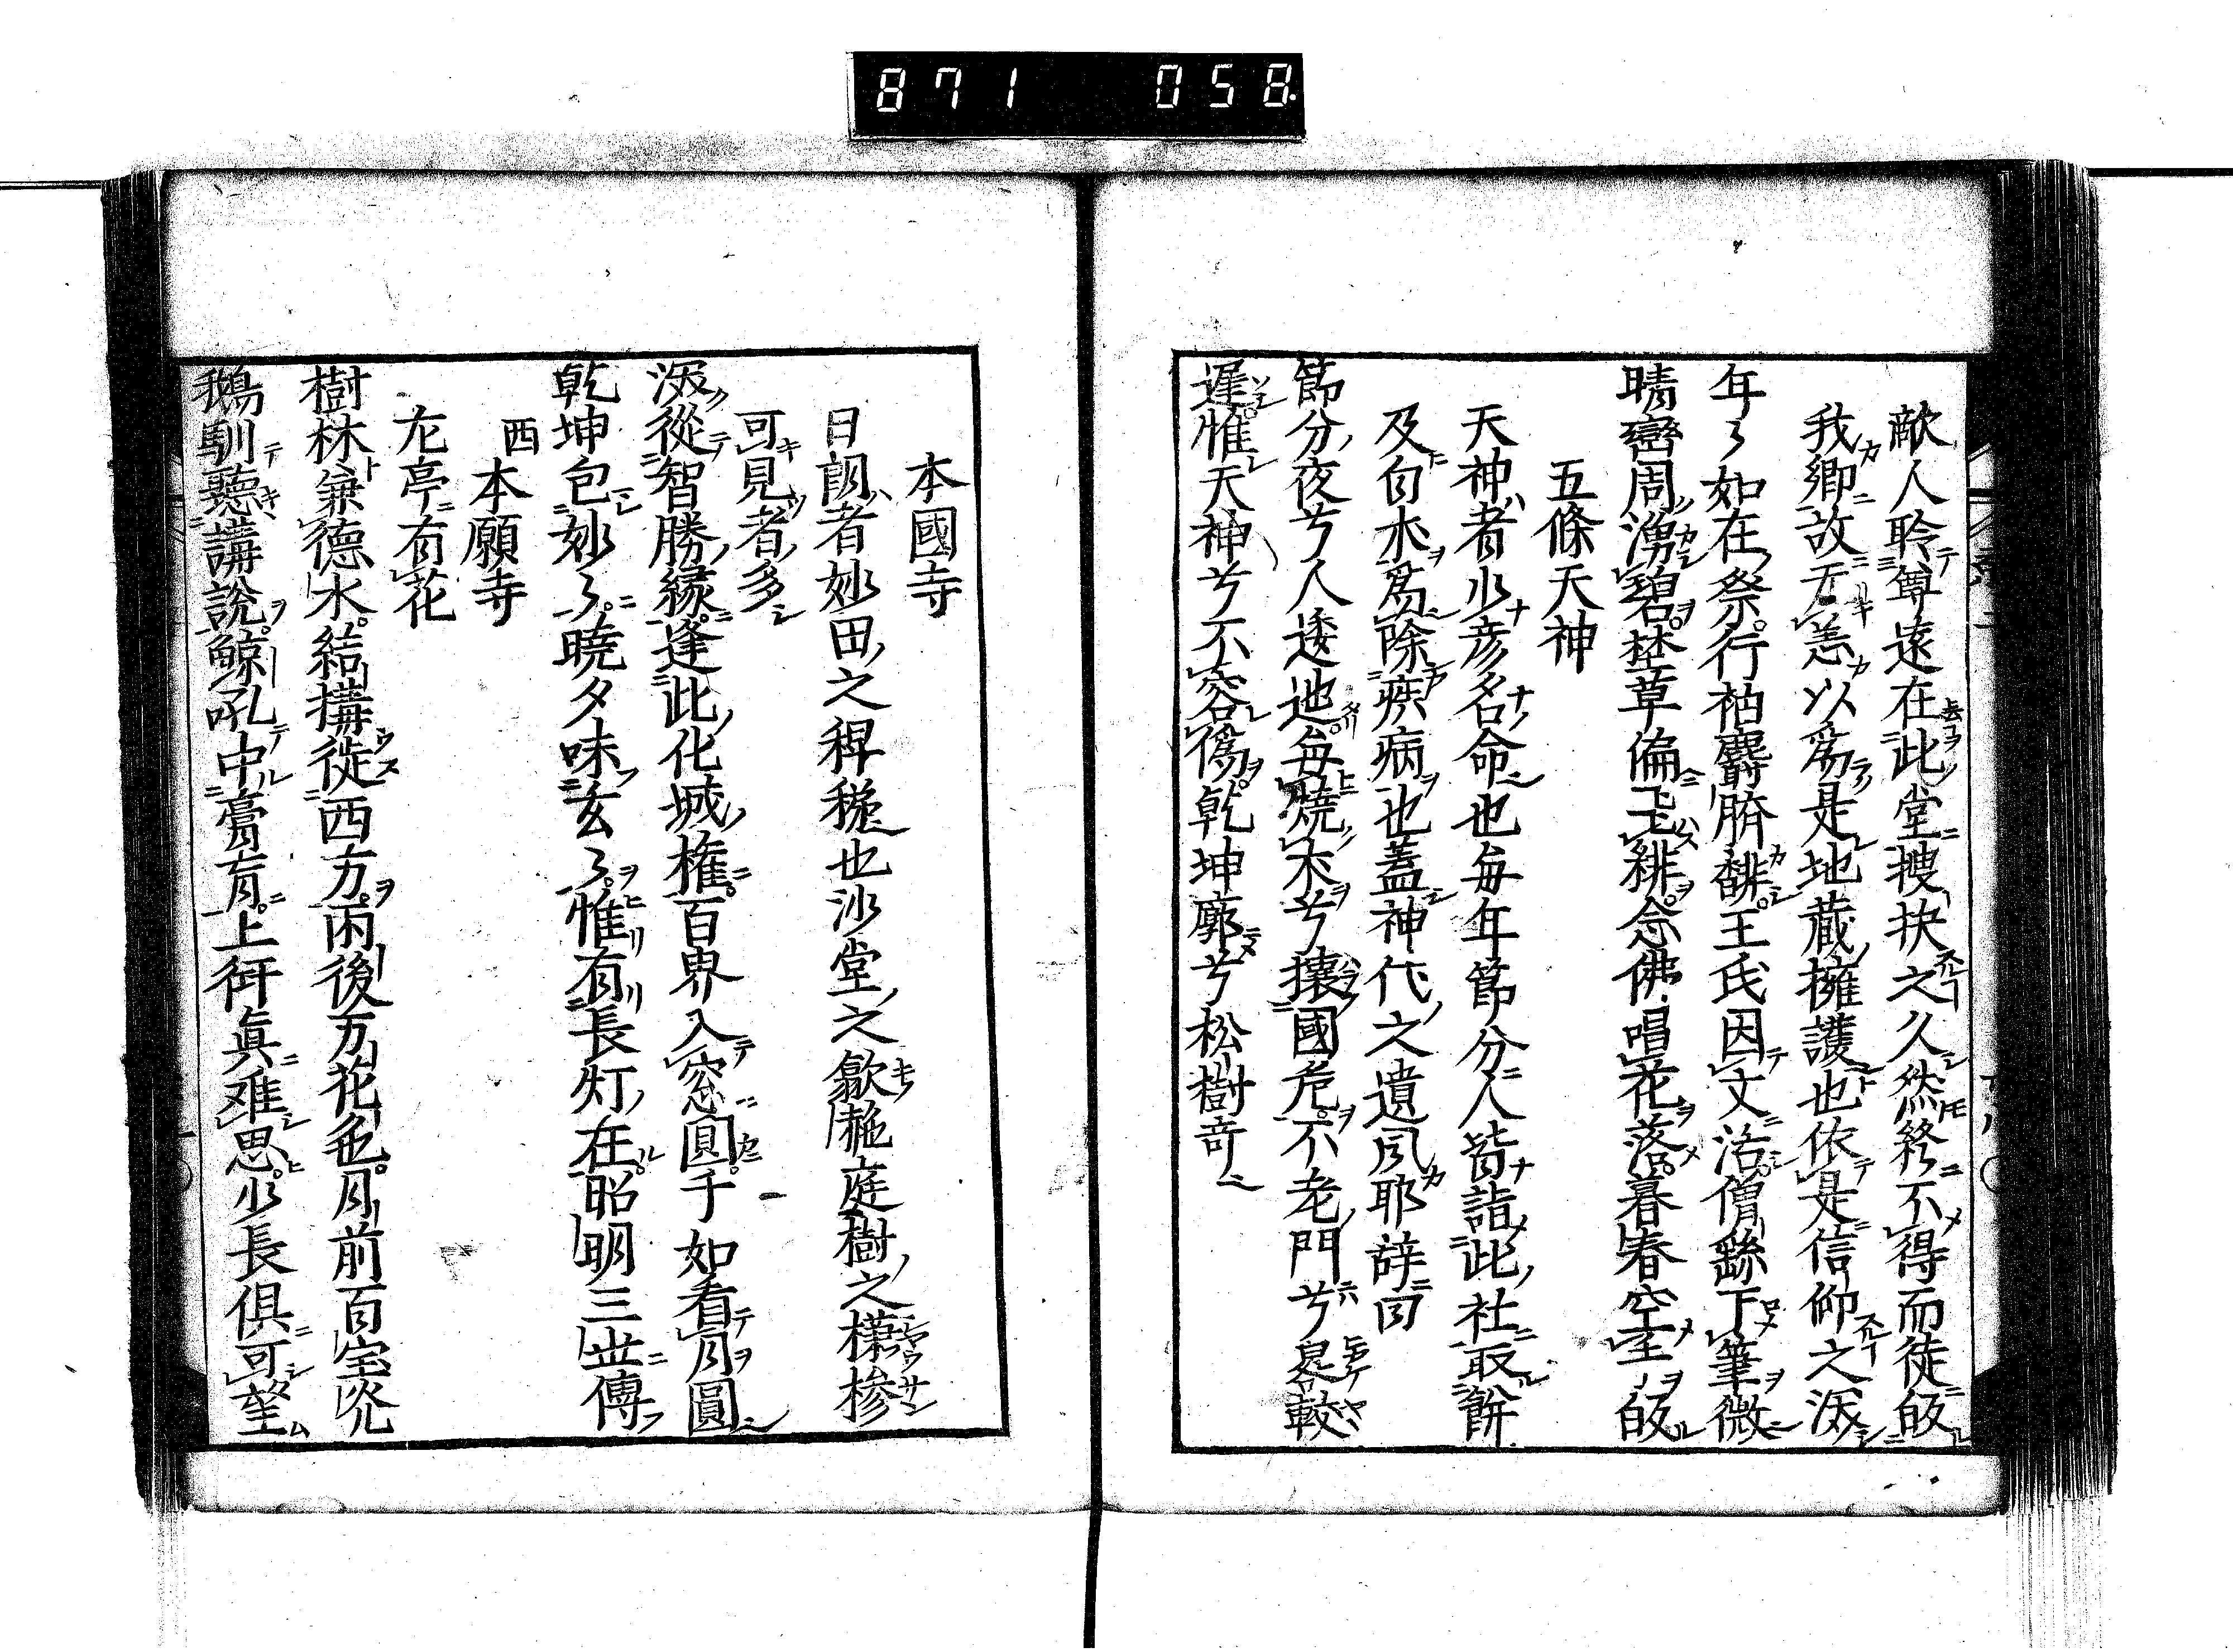 871 058
敵人聆尊遠在此堂搜抉之久然終不得而徒皈
我卿故无恙以爲是地蔵擁護也依是信仰之深
年〻如在祭行柏麝臍馡王氏因文活僧繇下筆微
晴巒周湧碧埜草偏䒑緋念佛唱花落暮春空至皈
五條天神
天神者少彦名命也毎年節分人皆詣此社取餅
及白朮爲除疾病也蓋神代之遺風耶辞曰
節分夜兮人逶迤毎燒朮兮攘國危不老門兮晷較
遲惟天神兮不容僞乾坤廓兮松樹竒
本國寺
日朗者妙田之稗穐也沙堂之歙赩庭樹之櫹椮
可見者多
深從智勝緣逢此化城權百界入窓圓千如看月圓
乾坤包妙〻曉夕味玄〻惟有長灯在昭明三世傳
西本願寺
左亭有花
樹林兼德水結搆徙西方雨後万花色月前百宝光
鵝馴聽講說鯨吼中膏肓上衎眞难思少長俱可望